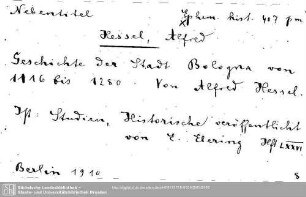 Nebentitel
Ephem. hist. 407 pm
Hessel, Alfred
Geschichte der Stadt Bologna von
1116 bis 1280. Von Alfred Hessel.
Ist: Studien, Historische veröffentlicht
von E. Ebering Heft LXXVI
Berlin 1910
8
Sächsische Landesbibliothek -
Staats- und Universitätsbibliothek Dresden